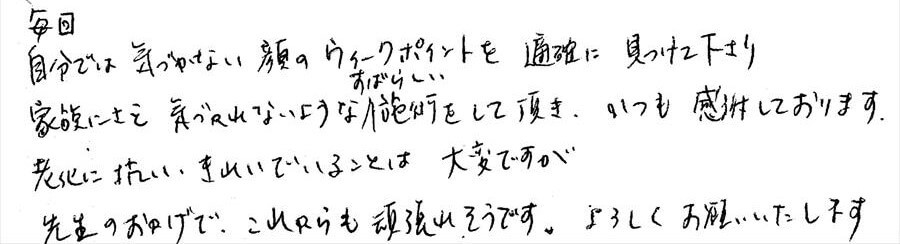 毎回
自分では気づかない顔のウィークポイントを適確に見つけて下さり
家族にさえ気づかれないようなすばらしい施術をして頂き、いつも感謝しております。
老化に抗い、きれいでいることは大変ですが
先生のおかげで、これからも頑張れそうです。よろしくお願いいたします